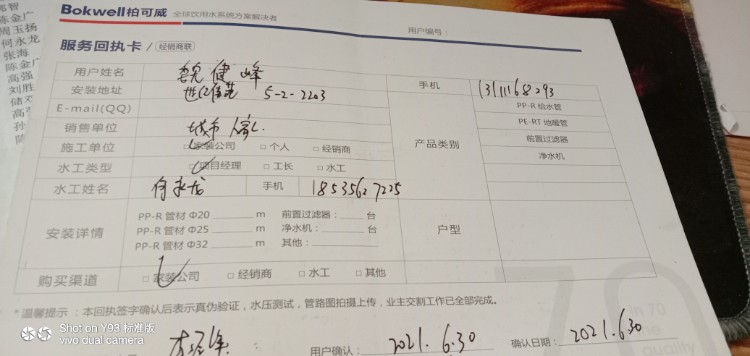 陈金广
周玉扬
何永龙
张海
陈金广
高强
刘胜
Bokwell柏可威 全球饮用水系统方案解决者
用户编号：
服务回执卡 / 经销商联
用户姓名 健峰 手机
安装地址 5-2-2203
E-mail(QQ)
销售单位 城市人家
施工单位 □家装公司 □个人 □经销商
水工类型 □项目经理 □工长 □水工
产品类别
PP-R 给水管
PE-RT 地暖管
前置过滤器
净水机
水工姓名 何永龙 手机 18535627225
安装详情
PP-R 管材 Φ20 m 前置过滤器： 台
PP-R 管材 Φ25 m 净水机： 台
PP-R 管材 Φ32 m 其他：
户型
购买渠道 □家装公司 □经销商 □水工 □其他
*温馨提示：本回执签字确认后表示真伪验证，水压测试，管路图拍摄上传，业主交割工作已全部完成。
用户确认： 2021.6.30 确认日期： 2021.6.30
Shot on Y93 标准版
vivo dual camera